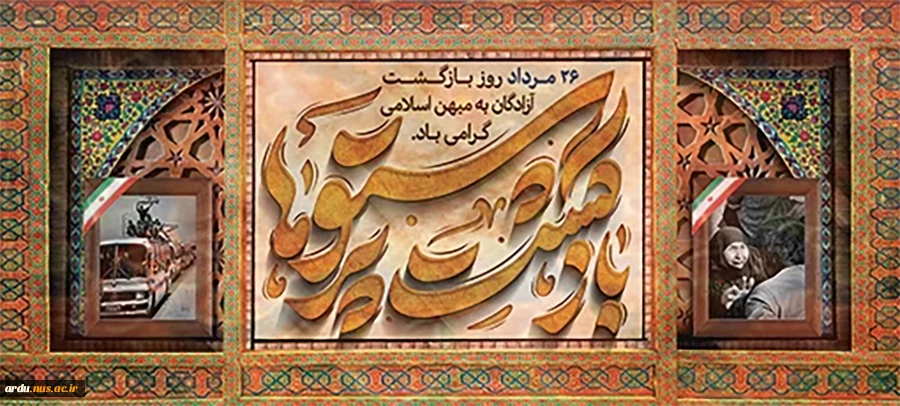 ۲۶ مرداد روز بازگشت
آزادگان به میهن اسلامی
گرامی باد.
بازگشت پرستوها
ardu.nus.ac.ir